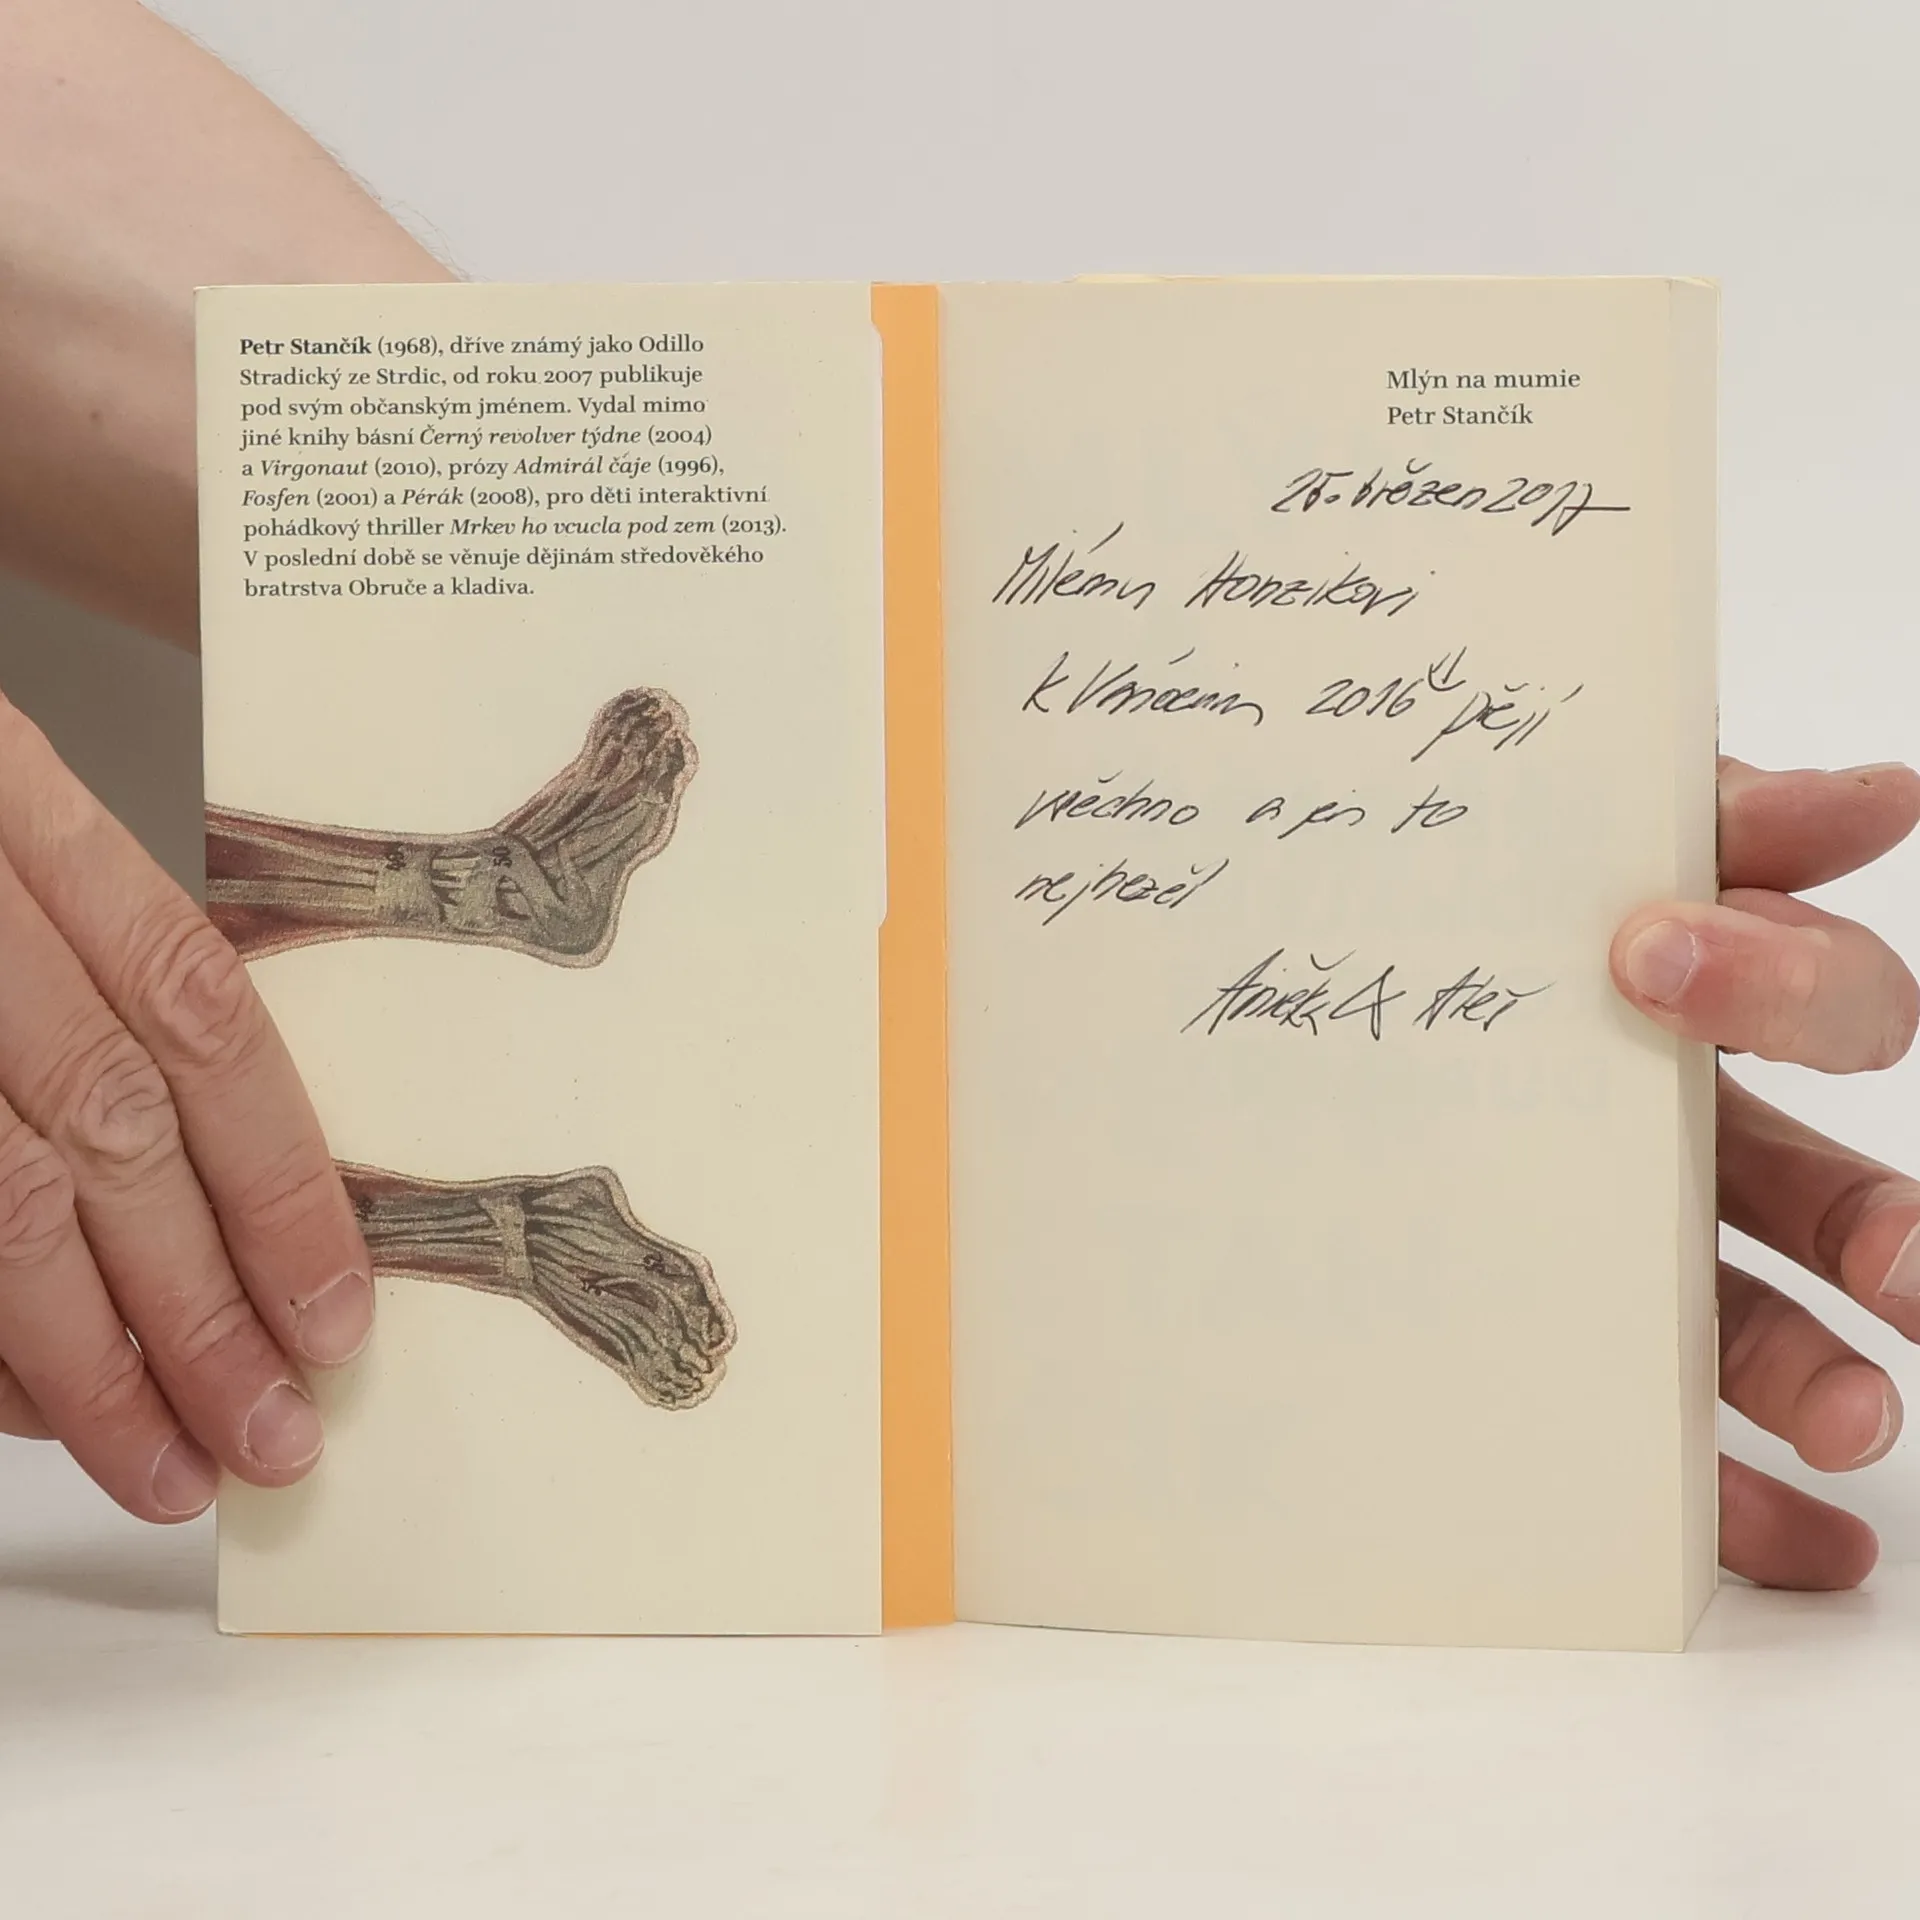 Petr Stančík (1968), dříve známý jako Odillo
Stradický ze Strdic, od roku 2007 publikuje
pod svým občanským jménem. Vydal mimo
jiné knihy básní Černý revolver týdne (2004)
a Virgonaut (2010), prózy Admirál čaje (1996),
Fosfen (2001) a Pérák (2008), pro děti interaktivní
pohádkový thriller Mrkev ho vcucla pod zem (2013).
V poslední době se věnuje dějinám středověkého
bratrstva Obruče a kladiva.
49
50
52
Mlýn na mumie
Petr Stančík
25. březen 2017
Milému Honzíkovi
k Vánocům 2016 přejí
všechno a jen to
nejhezčí
&  Aleš